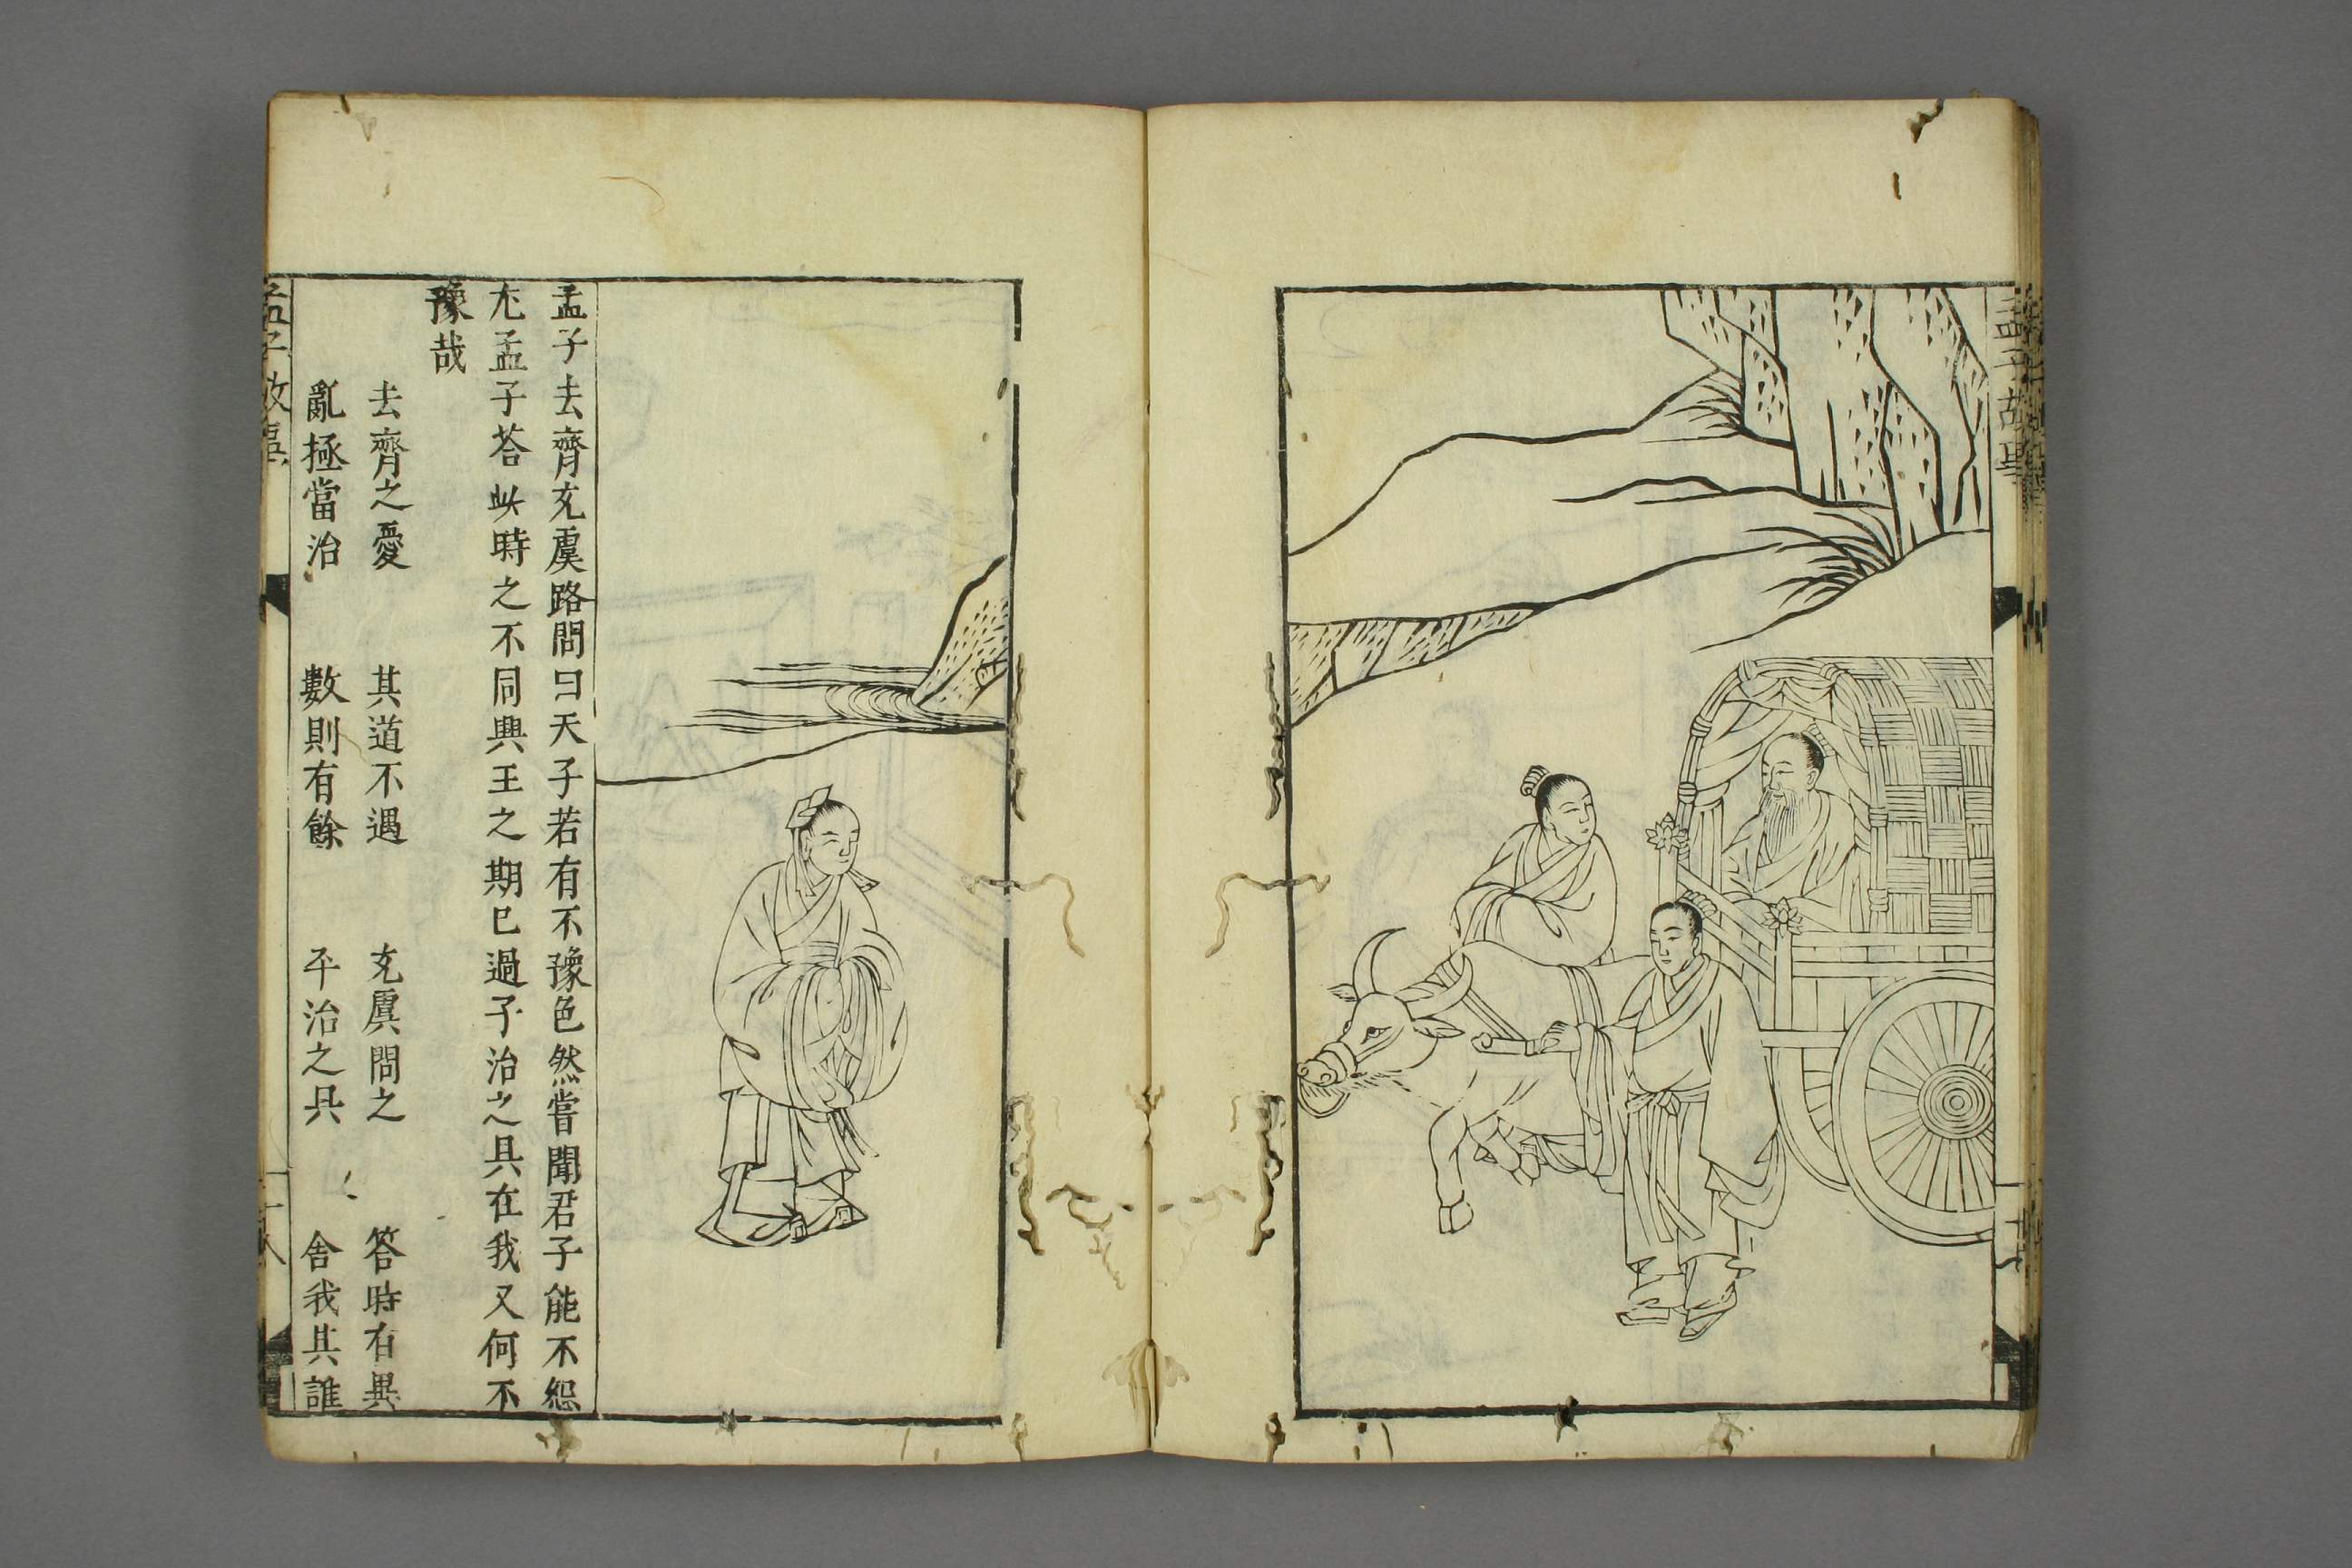 孟子故事
孟子去齊充虞路問曰天子若有不豫色然嘗聞君子能不怨
尤孟子荅此時之不同興王之期已過子治之具在我又何不
豫哉
去齊之憂　其道不遇　充虞問之　答時有異
亂極當治　數則有餘　平治之具　舍我其誰
孟子故事
十八